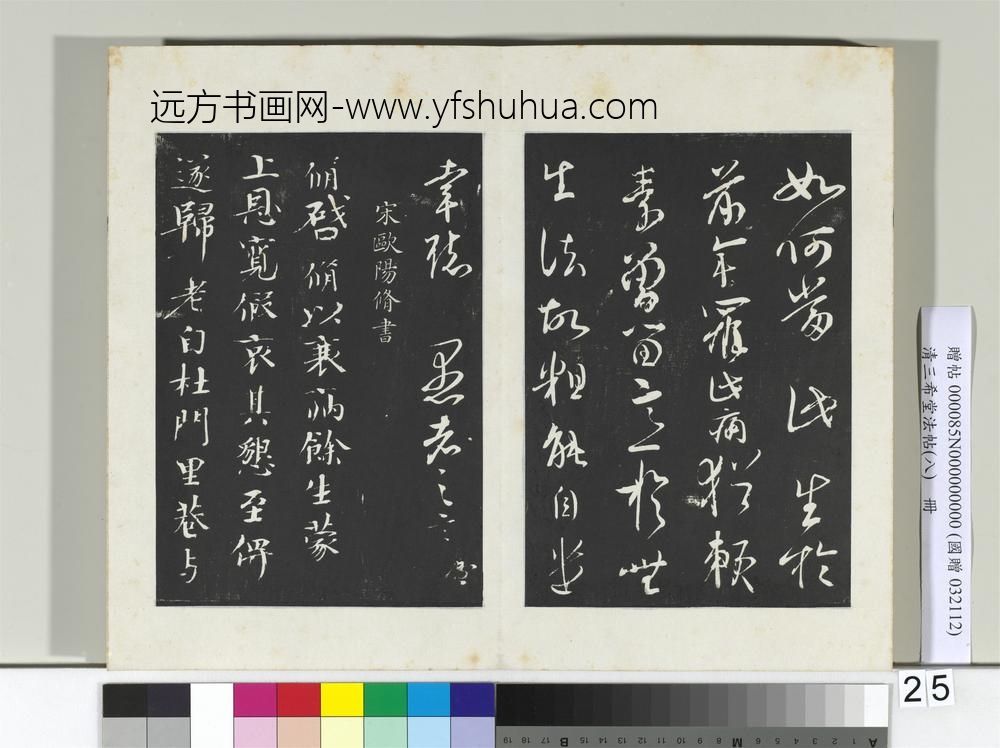 远方书画网-www.yfshuhua.com
如何劳 此生於
前年罹此病 犹赖
素曾留意於世
生法故粗能自
幸聽 愚者之言
宋歐陽脩書
脩啓 脩以衰病餘生蒙
上恩寬假哀其懇至俾
遂歸老自杜門里巷与
贈帖 000085N000000000 (國贈 032112)
清三希堂法帖(八) 冊
25